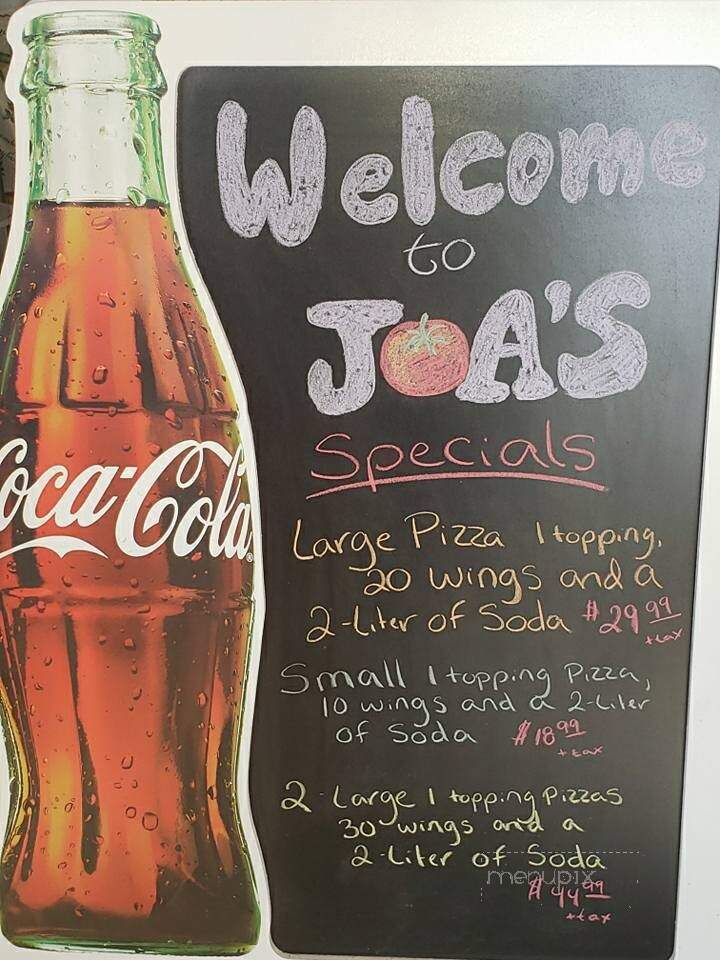 Welcome
to
JOA'S
Specials
Large Pizza 1 topping,
20 wings and a
2-Liter of Soda $29.99
+tax
Small 1 topping Pizza,
10 wings and a 2-Liter
of Soda $18.99
+tax
2 Large 1 topping Pizzas
30 wings and a
2-Liter of Soda
$44.99
+tax
Coca-Cola
menupix